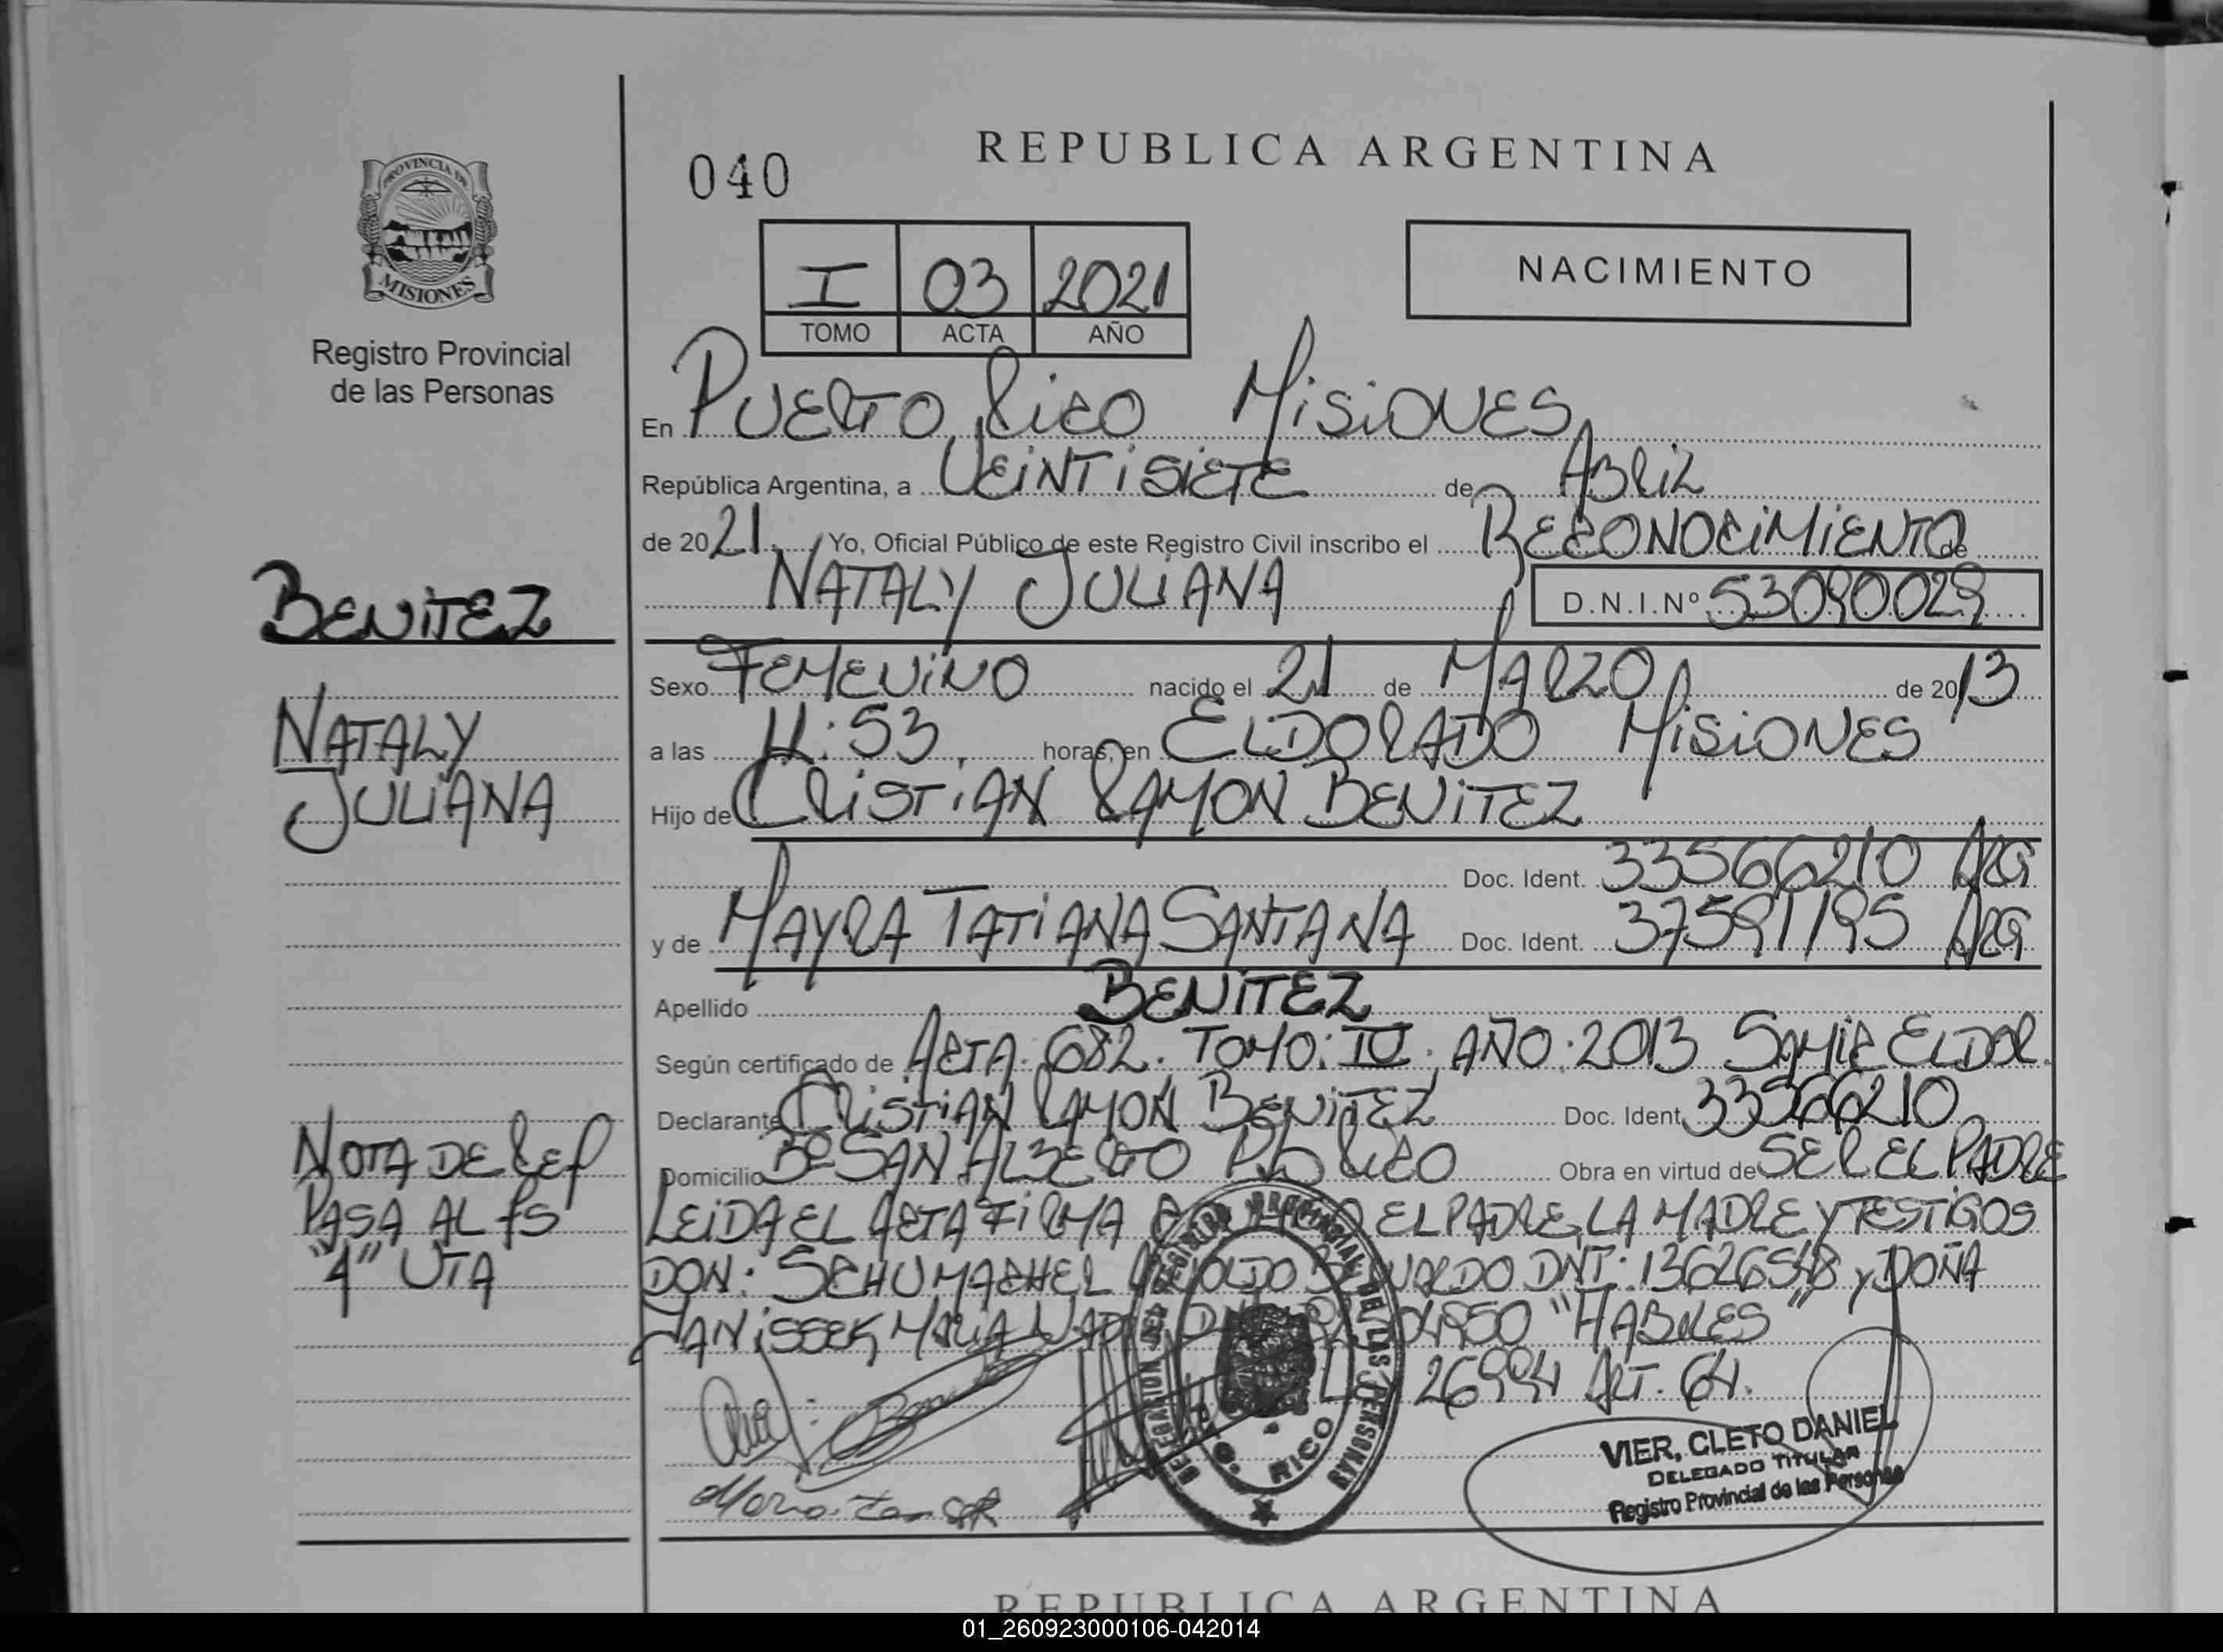 REPUBLICA ARGENTINA
040
PROVINCIA DE
MISIONES
Registro Provincial
de las Personas
I 03 2021
TOMO ACTA AÑO
NACIMIENTO
En PUERTO RICO MISIONES
República Argentina, a VEINTISIETE de ABRIL
de 2021 Yo, Oficial Público de este Registro Civil inscribo el RECONOCIMIENTO de
NATALY JULIANA D.N.I.Nº 53090029
BENITEZ
NATALY
JULIANA
Sexo FEMENINO nacido el 21 de MARZO de 2013
a las 11:53 horas, en ELDORADO MISIONES
Hijo de CRISTIAN RAMON BENITEZ
Doc. Ident. 33566210 ARG
y de MAYRA TATIANA SANTANA Doc. Ident. 37591195 ARG
Apellido BENITEZ
Según certificado de ACTA: 682. TOMO: IV. AÑO: 2013 SAMIC ELDOR.
Declarante CRISTIAN RAMON BENITEZ Doc. Ident. 33566210
Domicilio Bº SAN ALBERTO Pto RICO Obra en virtud de SER EL PADRE
LEIDA EL ACTA FIRMA EL PADRE, LA MADRE Y TESTIGOS
DON: SCHUMACHER DNI: 13626548 y DOÑA
MARIA "HABILES"
26994 ART. 64.
NOTA DE REF
PASA AL fs
"4" UTA
DELEGACION DEL REGISTRO PROVINCIAL DE LAS PERSONAS
RICO
VIER, CLETO DANIEL
DELEGADO TITULAR
Registro Provincial de las Personas
REPUBLICA ARGENTINA
01_260923000106-042014